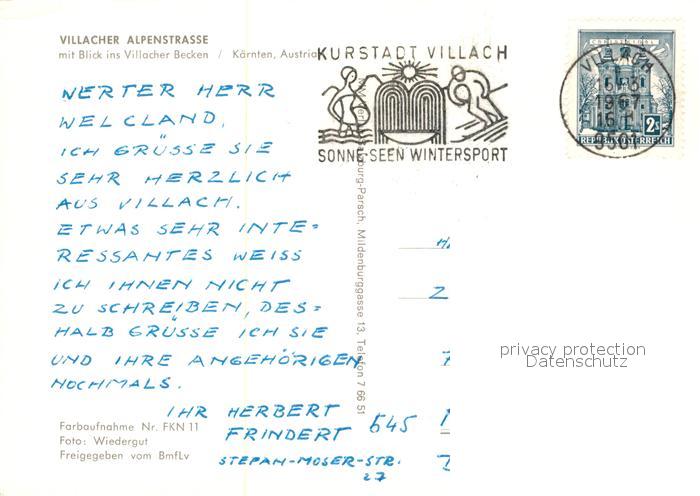 VILLACHER ALPENSTRASSE
mit Blick ins Villacher Becken / Kärnten, Austria
WERTER HERR
WELCLAND,
ICH GRÜSSE SIE
SEHR HERZLICH
AUS VILLACH.
ETWAS SEHR INTE=
RESSANTES WEISS
ICH IHNEN NICHT
ZU SCHREIBEN, DES=
HALB GRÜSSE ICH SIE
UND IHRE ANGEHÖRIGEN
NOCHMALS.
IHR HERBERT
FRINDERT
STEPAN-MOSER-STR.
27
Farbaufnahme Nr. FKN 11
Foto: Wiedergut
Freigegeben vom BmfLv
KURSTADT VILLACH
SONNE-SEEN WINTERSPORT
burg-Parsch, Mildenburggasse 13, Telefon 7 66 51
VILLACH
1967
16
2S
REPUBLIK ÖSTERREICH
Z
645
privacy protection
Datenschutz